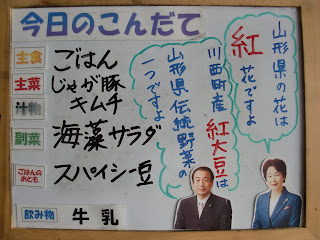 今日のこんだて
主食 ごはん
主菜 じゃが豚
キムチ
汁物
副菜 海藻サラダ
ごはんのおとも スパイシー豆
飲み物 牛乳
山形県の花は
紅花ですよ
川西町産紅大豆は
山形県伝統野菜の
一つですよ